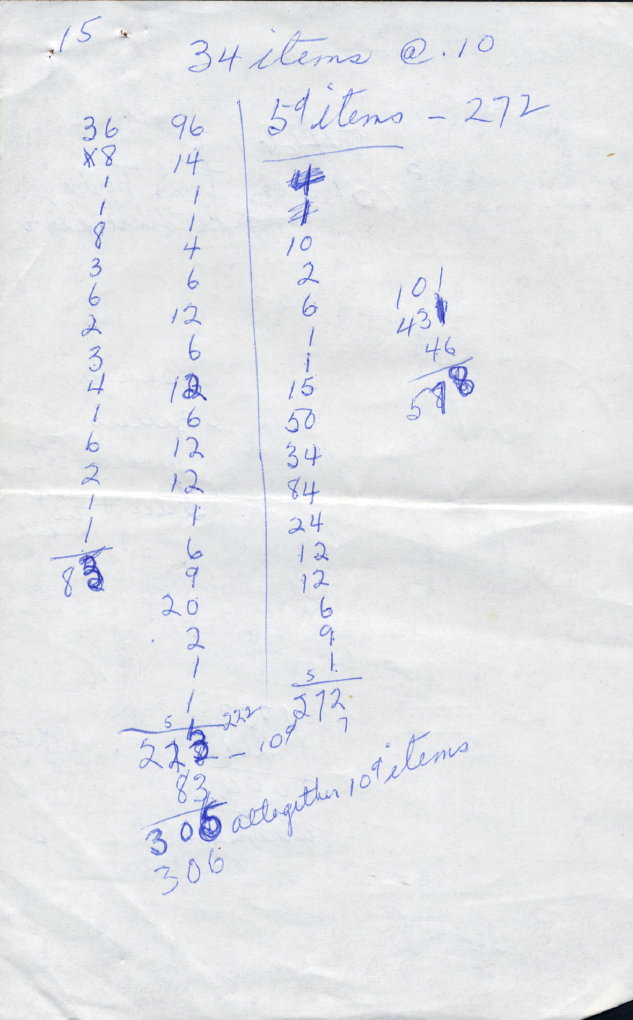 15
34 items @ .10
36
8
1
1
8
3
6
2
3
4
1
6
2
1
1
83
96
14
1
1
4
6
12
6
12
6
12
12
1
6
9
20
2
1
1
5
222
223 - 10¢
83
306 altogether 10¢ items
306
5¢ items - 272
4
1
10
2
6
1
1
15
50
34
84
24
12
12
6
9
1
5
272
7
101
431
46
578